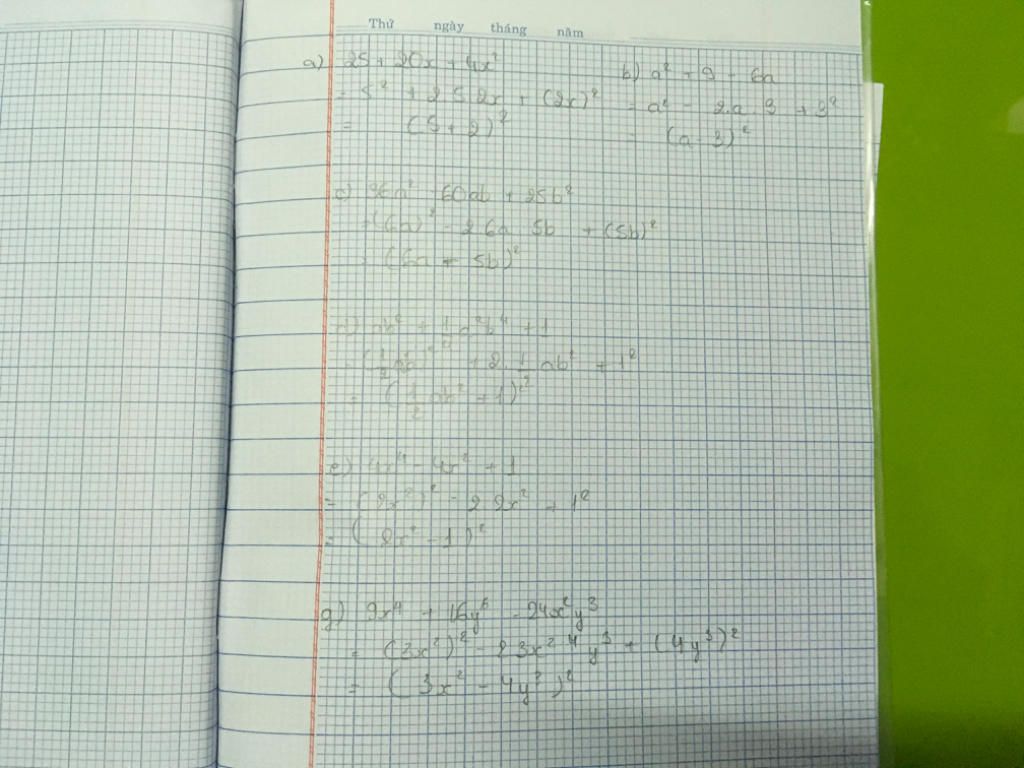 Thứ ngày tháng năm
a) 25 + 20x + 4x²
= 5² + 2 5 2x + (2x)²
= (5 + 2)²
b) a² + 9 - 6a
= a² - 2.a.3 + 3²
= (a - 3)²
c) 36a² - 60ab + 25b²
= (6a)² - 2 6a 5b + (5b)²
= (6a - 5b)²
d) ab² + 1/4 a²b⁴ + 1
= (1/2 ab²)² + 2. 1/2 ab² + 1²
= (1/2 ab² + 1)²
e) 4x⁴ - 4x² + 1
= (2x²)² - 2 2x² + 1²
= (2x² - 1)²
g) 9x⁴ + 16y⁶ - 24x²y³
= (3x²)² - 2 3x² 4y³ + (4y³)²
= (3x² - 4y³)²